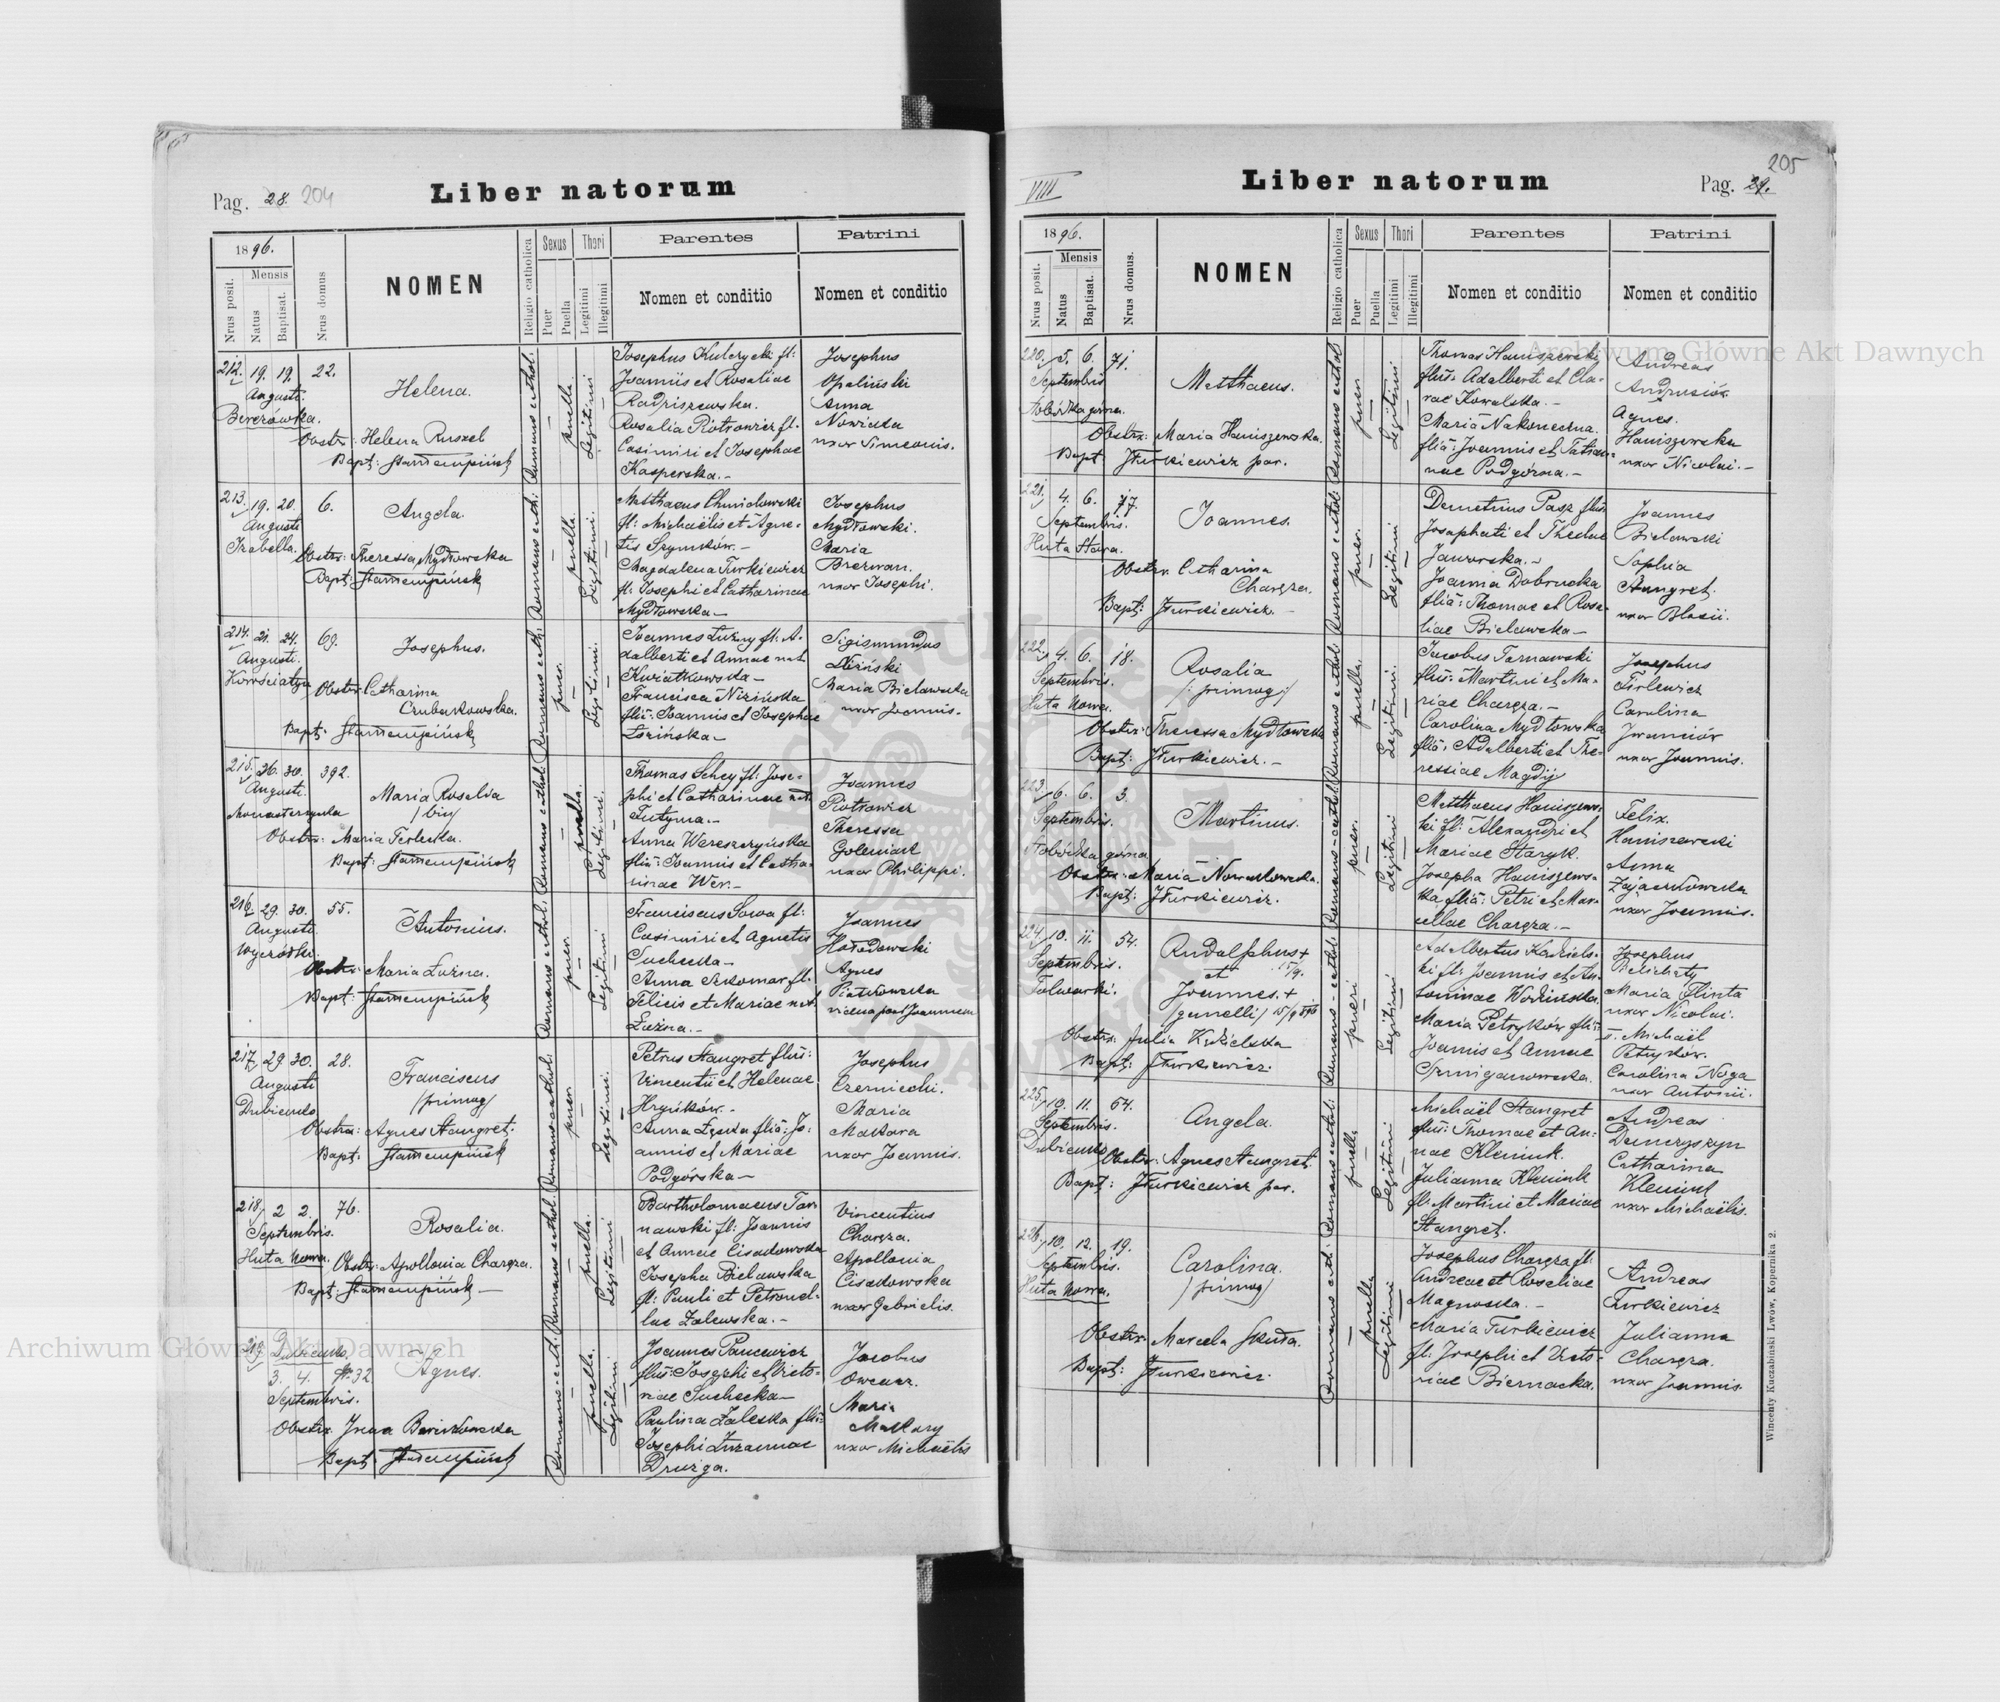 Pag. 28. 204
Liber natorum
1896.
Nrus posit.
Mensis
Natus
Baptisat.
Nrus domus
NOMEN
Religio catholica
Sexus
Puer
Puella
Thori
Legitimi
Illegitimi
Parentes
Nomen et conditio
Patrini
Nomen et conditio
212. 19. 19. 22.
Augusti
Berezówka.
Helena.
Obstx: Helena Ruszel
Bapt:
Romano cathol.
puella.
Legitimi
Josephus Kulczycki fl:
Joannis et Rosaliae
Radziszewska.
Rosalia Piotrowicz fl.
Casimiri et Josephae
Kasperska.-
Josephus
Opaliński
Anna
Nowicka
uxor Simeonis.
213. 19. 20. 6.
Augusti
Izabella.
Angela.
Obstx: Theressa Mydłowska
Bapt:
Romano cath:
puella.
Legitimi.
Matthaeus Chmielowski
fl: Michaëlis et Agne-
tis Szymków.-
Magdalena Turkiewicz
fl: Josephi et Catharinae
Mydłowska-
Josephus
Mydłowski.
Maria
Brezwan.
uxor Josephi.
214. 21. 24. 69.
Augusti.
Kowściatyn
Josephus.
Obstx: Catharina
Czubakowska.
Bapt:
Romano cath:
puer.
Legitimi.
Joannes Luzny fl: A-
dalberti et Annae nat
Kwiatkowska-
Francisca Niżińska
fliā: Joannis et Josephae
Łozińska-
Sigismundus
Niziński
Maria Bielawska
uxor Joannis.
215. 26. 30. 392.
Augusti.
Monasterzyska
Maria Rosalia
/bin/
Obstx: Maria Terlecka.
Bapt:
Romano cathol:
puella.
Legitimi.
Thomas Schey fl: Jose-
phi et Catharinae nat
Tutyna.-
Anna Wereszczyńska
fliā: Joannis et Catha-
rinae Wer.-
Joannes
Piotrowicz
Theressa
Goleniak
uxor Philippi.
216. 29. 30. 55.
Augusti
Wyczółki.
Antonius.
Obstx: Maria Luzna.
Bapt:
Romano cathol:
puer.
Legitimi
Franciscus Sowa fl:
Casimiri et Agnetis
Suchecka-
Anna Szkomar fl.
Felicis et Mariae nat
Luzna.-
Joannes
Hołodowski
Agnes
Piatkowska
vidua post Joannem
217. 29 30. 28.
Augusti
Dubienko
Franciscus
/primog/
Obstx: Agnes Stangret.
Bapt:
Romano cathol.
puer.
Legitimi.
Petrus Stangret fliū:
Vincentii et Helenae
Hryńków.-
Anna Łęska fliā: Jo-
annis et Mariae
Podgórska-
Josephus
Czernicki.
Maria
Makara
uxor Joannis.
218. 2 2. 76.
Septembris.
Huta Nowa.
Rosalia.
Obstx: Apollonia Charęza.
Bapt:
Romano cathol:
puella.
Legitimi
Bartholomaeus Tar-
nawski fl: Joannis
et Annae Cisadowska
Josepha Bielawska
fl: Pauli et Petronel-
lae Zalewska.-
Vincentius
Charęza.
Apollonia
Cisadowska
uxor Gabrielis.
219. Dubienko.
3. 4. 32
Septembris.
Agnes.
Obstx
Bapt
Romano-cath:
puella.
Legitimi.
Joannes Pancewicz
fliū: Josephi et Victo-
riae Suchecka-
Paulina Zaleska fliā:
Josephi Zuzannae
Druzga.
Jacobus
Owcarz.
Maria
Makary
uxor Michaëlis
VIII
Liber natorum
205
Pag. 29.
1896.
Nrus posit.
Mensis
Natus
Baptisat.
Nrus domus.
NOMEN
Religio catholica
Sexus
Puer
Puella
Thori
Legitimi
Illegitimi
Parentes
Nomen et conditio
Patrini
Nomen et conditio
220. 5. 6. 71.
Septembris
Słobódka górna.
Matthaeus.
Obstx: Maria Haniszewska.
Bapt JTurkiewicz par.
Romano cathol
puer.
Legitimi
Thomas Haniszewski
fliū: Adalberti et Cla-
rae Kowalska.-
Maria Nakoneczna.
fliā: Joannis et Tatian-
nae Podgórna.-
Andreas
Andrusiów
Agnes.
Haniszewska
uxor Nicolai.-
221. 4. 6. 17.
Septembris.
Huta Stara.
Joannes.
Obstx. Catharina
Charęza.
Bapt: JTurkiewicz.-
Romano cathol:
puer.
Legitimi
Demetrius Pasz fliū:
Josaphati et Theclae
Jaworska.-
Joanna Dobrucka
fliā: Thomae et Rosa-
liae Bielawska-
Joannes
Bielawski
Sophia
Stangret.
uxor Blasii.
222. 4. 6. 18.
Septembris.
Huta Nowa.
Rosalia
/:primog:/
Obstx: Theressa Mydłowska
Bapt: JTurkiewicz.-
Romano cathol
puella.
Legitimi.
Jacobus Tarnawski
fliū: Martini et Ma-
riae Charęza.-
Carolina Mydłowska
fliā: Adalberti et The-
ressiae Magdij
Josephus
Firlewicz
Carolina
Iwanciów
uxor Joannis.
223. 6. 6. 3.
Septembris.
Słobódka górna
Martinus.
Obstx: Maria Nowakowska.
Bapt: JTurkiewicz.
Romano-cathol
puer.
Legitimi
Matthaeus Haniszews-
ki fl: Alexandri et
Mariae Staryk.
Josepha Haniszews-
ka fliā: Petri et Mar-
cellae Charęza.-
Felix.
Haniszewski
Anna
Zajączkowska
uxor Joannis.
224. 10. 11. 54.
Septembris.
Folwarki.
Rudolphus +
et 15/9.
Joannes. +
/gemelli/ 15/9 896
Obstx: Julia Kozielska
Bapt: JTurkiewicz.
Romano-cathol
pueri
Legitimi
Adalbertus Koziels-
ki fl: Joannis et An-
toninae Wodzińska.
Maria Petryków fliā:
Joannis et Annae
Josephus
Maria Flinta
uxor Nicolai.
II. Michaël
Petryków.
Carolina Noga
uxor Antonii.
225. 10. 11. 64.
Septembris.
Dubienko
Angela.
Obstx: Agnes Stangret.
Bapt: JTurkiewicz par.
Romano cathol:
puella
Legitimi
Michaël Stangret
fliū: Thomae et An-
nae Kleniuk.
Julianna Kleniuk
fl: Martini et Mariae
Stangret.
Andreas
Demczyszyn
Catharina
Kleniuk
uxor Michaëlis.
226. 10. 12. 19.
Septembris.
Huta Nowa.
Carolina.
/primog/
Obstx. Marcela Skuła.
Bapt: JTurkiewicz.
Romano cath:
puella
Legitimi
Josephus Charęza fl:
Andreae et Rosaliae
Magnoska.-
Maria Turkiewicz
fl: Josephi et Victo-
riae Biernacka.
Andreas
Turkiewicz
Julianna
Charęza.
uxor Joannis.
Wincenty Kuczabiński Lwów, Kopernika 2.
Archiwum Główne Akt Dawnych
Archiwum Główne Akt Dawnych